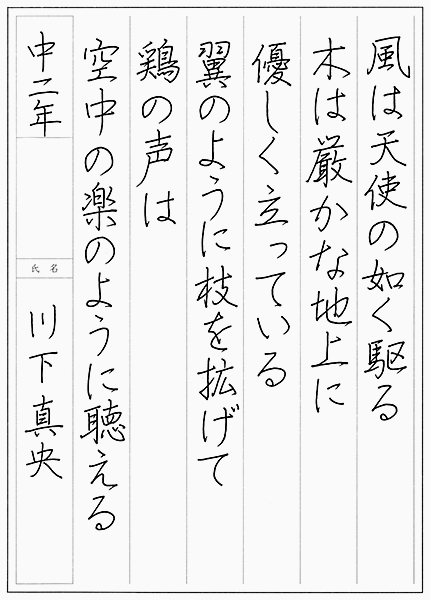 風は天使の如く駆る
木は厳かな地上に
優しく立っている
翼のように枝を拡げて
鶏の声は
空中の楽のように聴える
中二年
氏名
川下真央